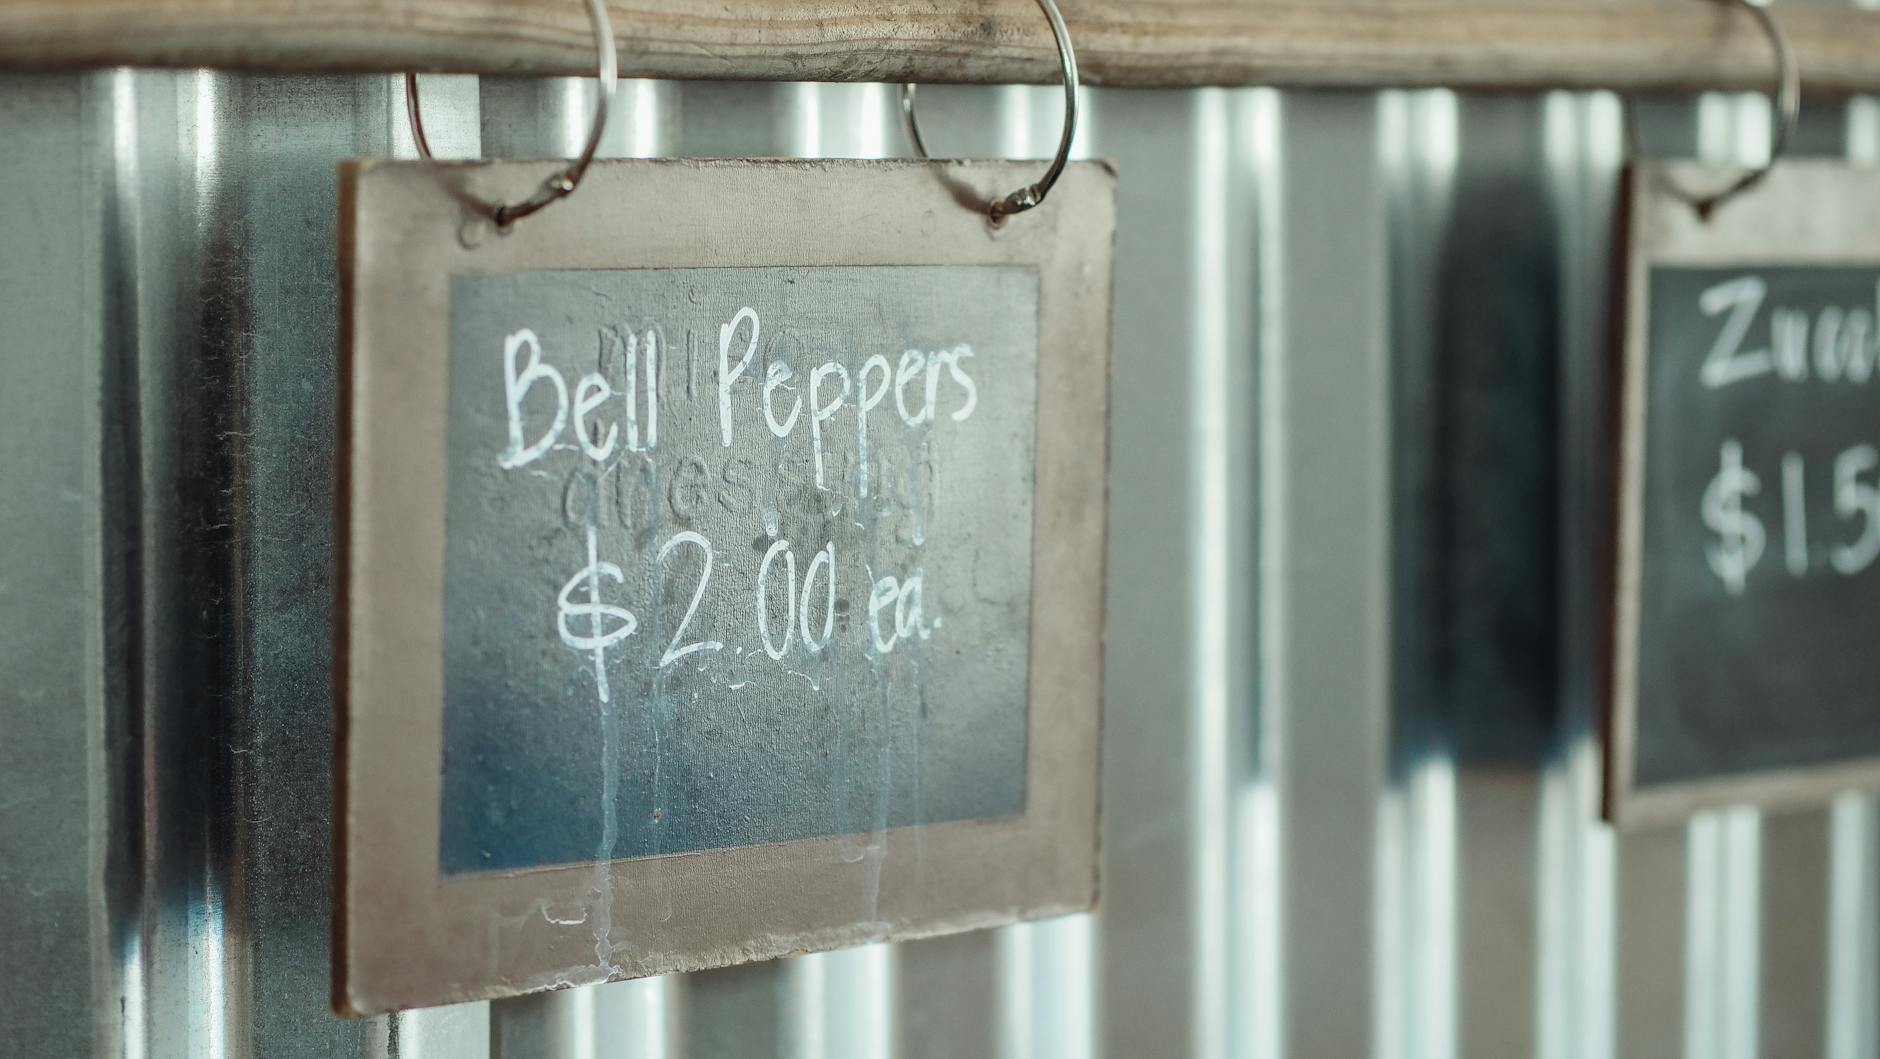 Bell Peppers
$2.00 ea.
Zucc
$1.5